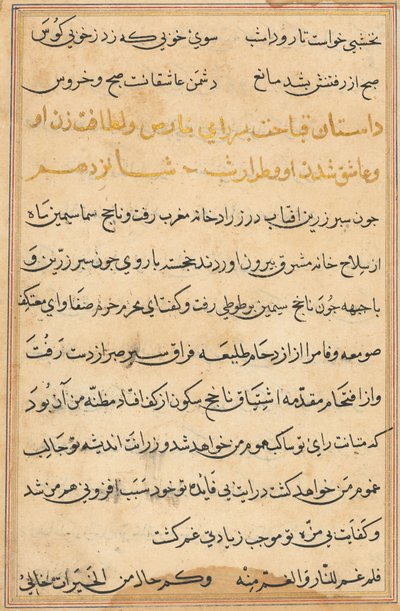 نخشبی خواست تا رود امشب سوی خوبی که زد ز خوبی کوس
صبح از رفتنش بشد مانع دشمن عاشقانست صبح و خروس
داستان قباحت بهرای فارس و لطافت زن او
و عاشق شدن او و طرار شب شانزدهم
جون سبر زرین افتاب در زرادخانه مغرب رفت و ناجخ سیمین ماه
از سلاح خانه مشرق بیرون اوردند خجسته با روی جون سبر زرین و
با جبهه جون ناجخ سیمین بر طوطی رفت و کفت ای محرم حرم صفا و ای معتکف
صومعه وفا مرا از ازدحام طلیعه فراق سبر صبر از دست رفت
و از اقتحام مقدمه اشتیاق ناجخ سکون از کف افتاد مظنه من آن بود
که متانت رای تو ساکب هموم من خواهد شد و زرانت اندیشه تو جالب
غموم من خواهد کشت درایت بی فایده تو خود سبب افزونی هم من شد
و کفایت بی مزه تو موجب زیادتی غم کشت
فلم غم للنار و الغم منه وکم حاد من الخیرات خالی